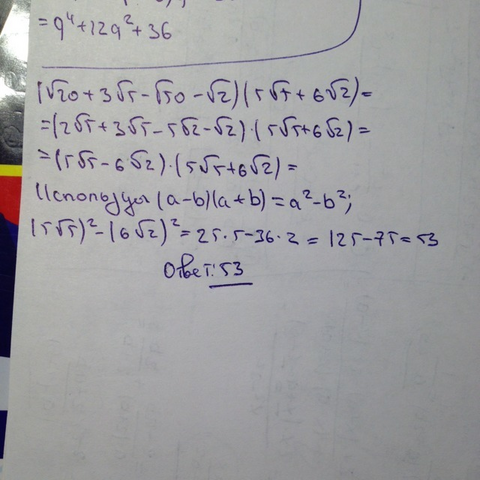 = q⁴+12q²+36
(√20+3√5-√50-√2)(5√5+6√2)=
=(2√5+3√5-5√2-√2)·(5√5+6√2)=
=(5√5-6√2)·(5√5+6√2)=
Используя (a-b)(a+b)=a²-b²;
(5√5)²-(6√2)²=25·5-36·2=125-75=53
Ответ:53